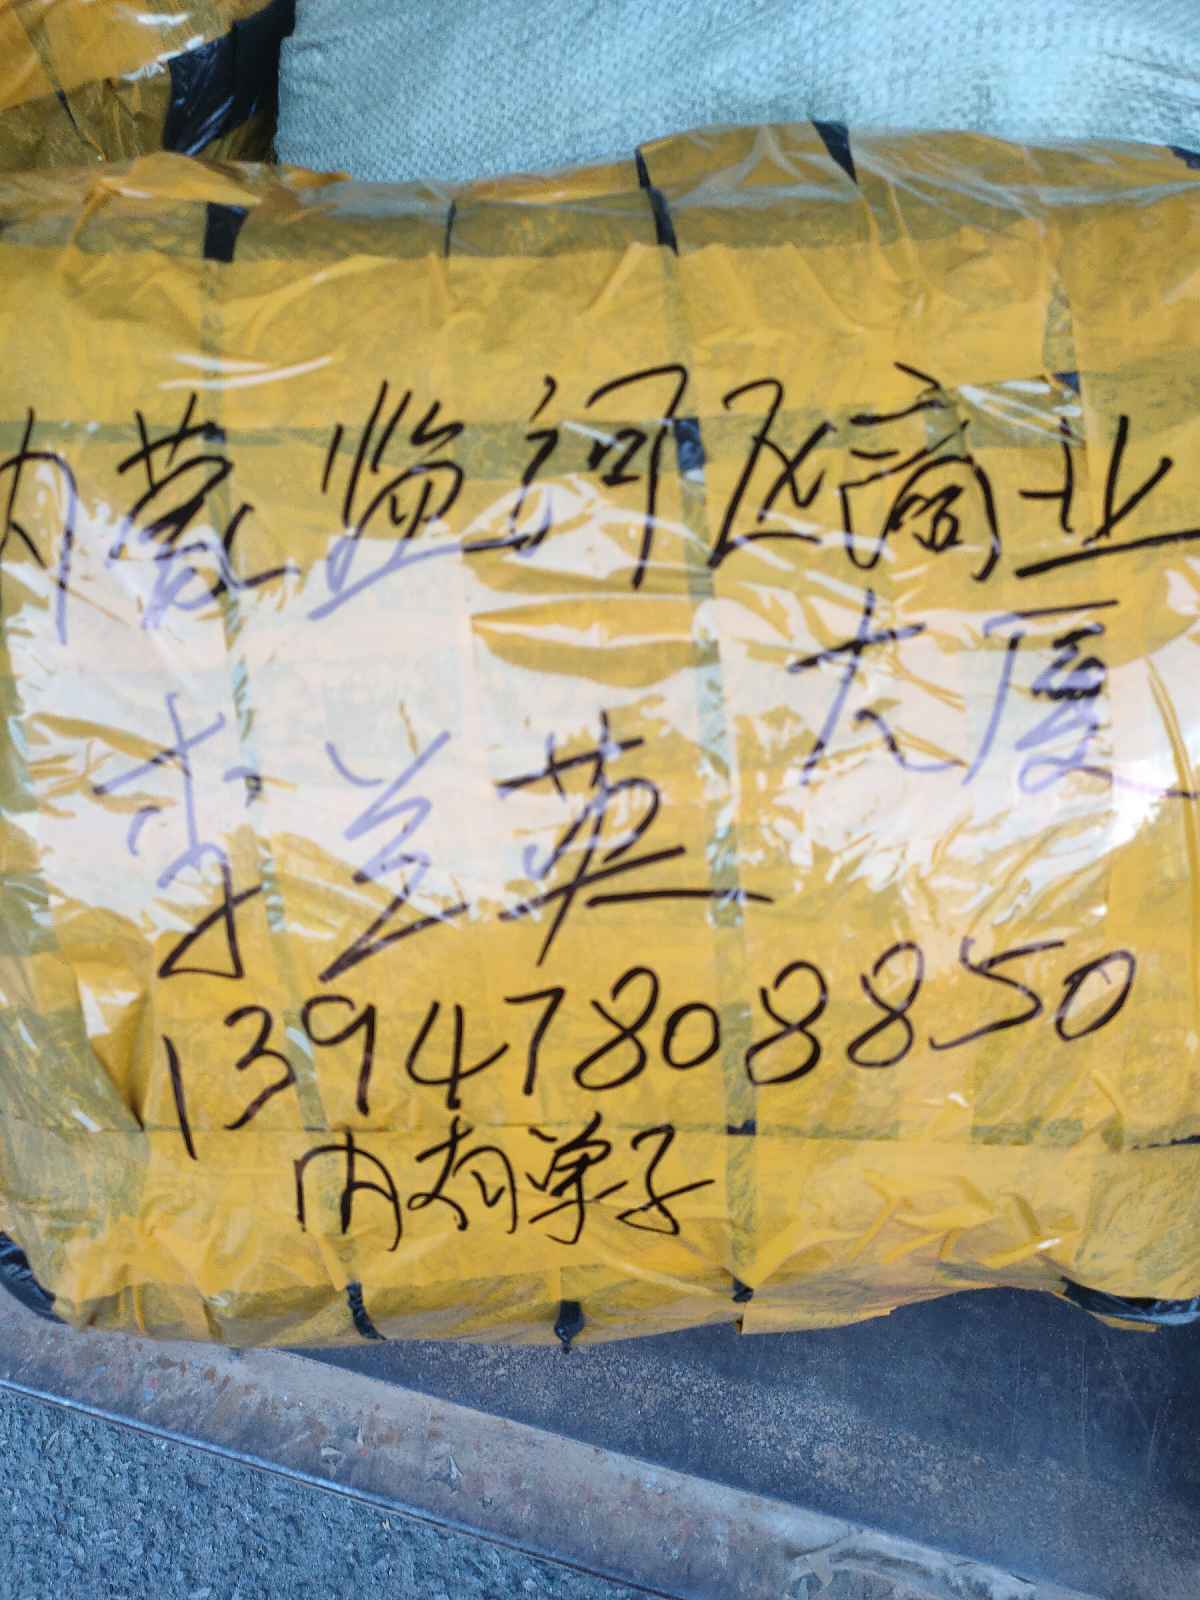 内蒙临河区商业
大厦
李兰英
13947808850
内有单子